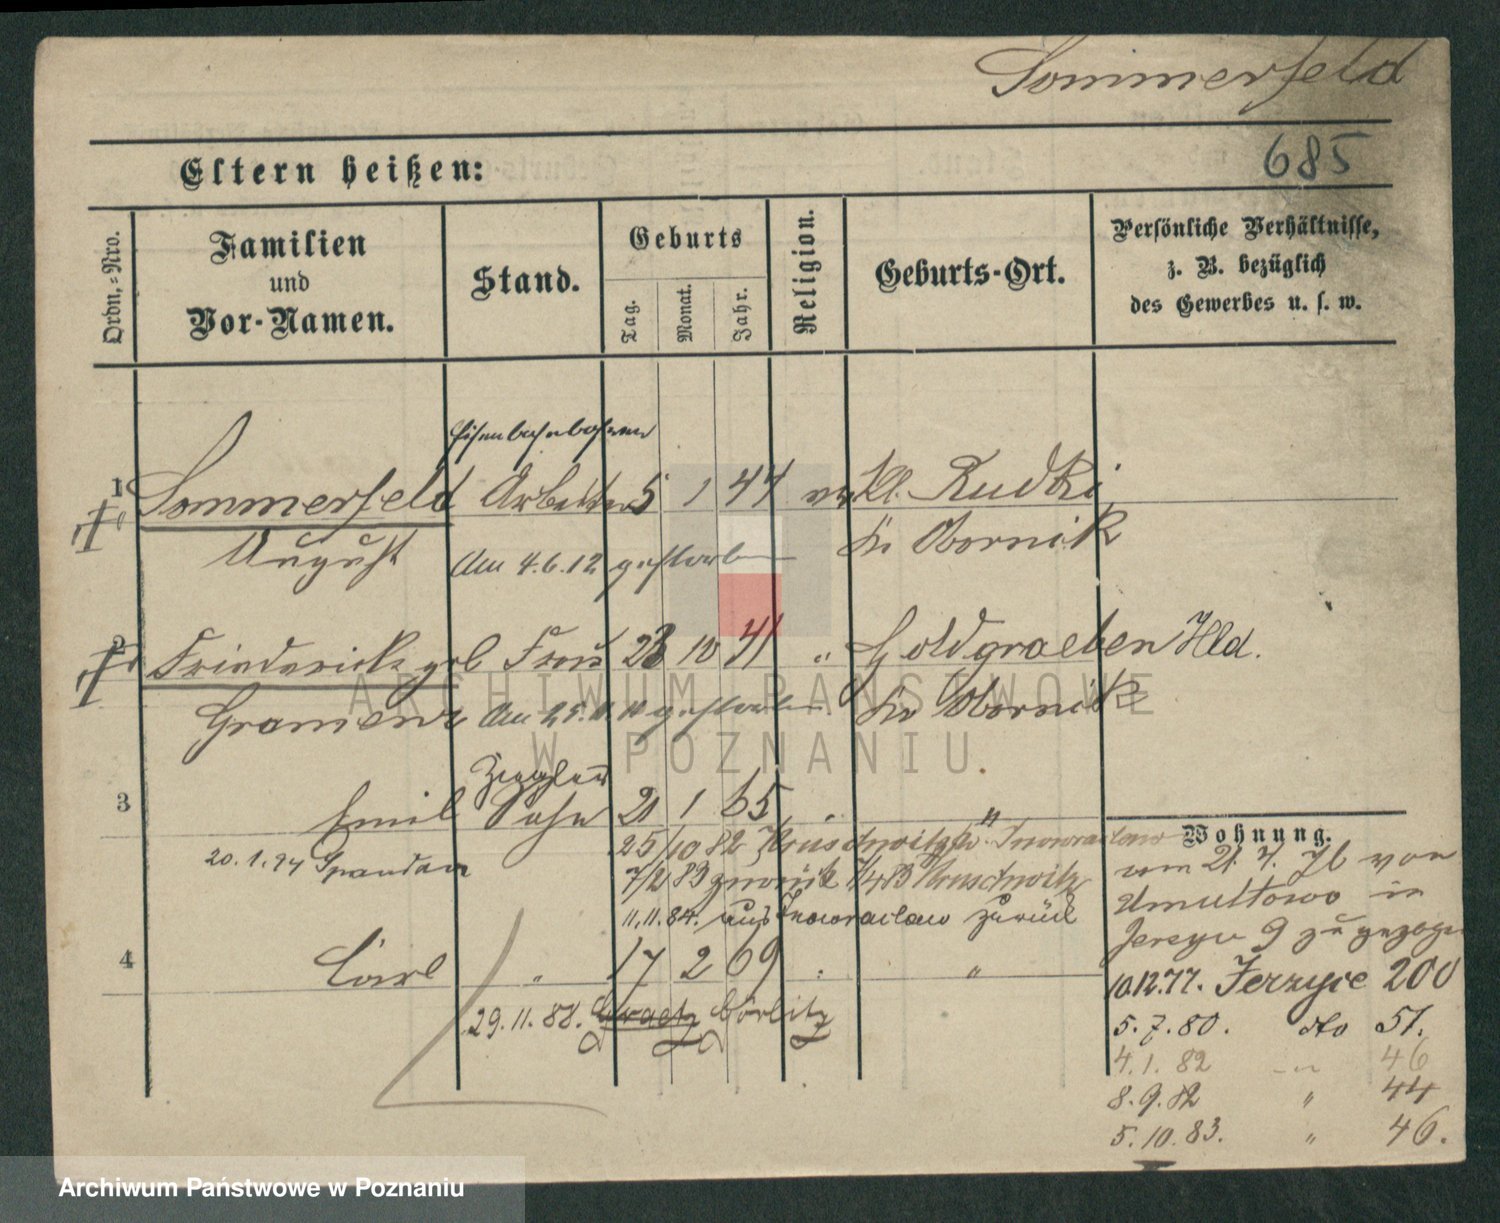 Sommerfeld
685
Eltern heißen:
Ordn.-Nro.
Familien
und
Vor-Namen.
Stand.
Geburts
Tag.
Monat.
Jahr.
Religion.
Geburts-Ort.
Persönliche Verhältnisse,
z. B. bezüglich
des Gewerbes u. s. w.
1 Sommerfeld Arbeiter 5 1 44 Kl. Rudki
August Am 4.6.12 gestorben Kr. Obornik
2 Friedericke geb Frau 23 10 41 " Goldgraeben Hld.
Gramenz Am 25.11.11 gestorben Kr Obornik
Ziegler
3 Emil Sohn 21 1 65 " "
20.1.94 Spandau
25/10 82 Kruschwitz Kr. Inowraclaw
7/2 83 zurück 7/4 83 Kruschwitz
11.11.84. aus Inowraclaw zurück
4 Carl " 17 2 69 " "
29.11.88. Graetz Görlitz
Wohnung.
vom 21. 7. 76 von
Umultowo in
Jerzyce 9 zugezogen
10.12.77. Jerzyce 200
5.7.80. dto 51.
4.1.82 " 46
8.9.82 " 44
5.10.83. " 46.
ARCHIWUM PAŃSTWOWE
W POZNANIU
Archiwum Państwowe w Poznaniu